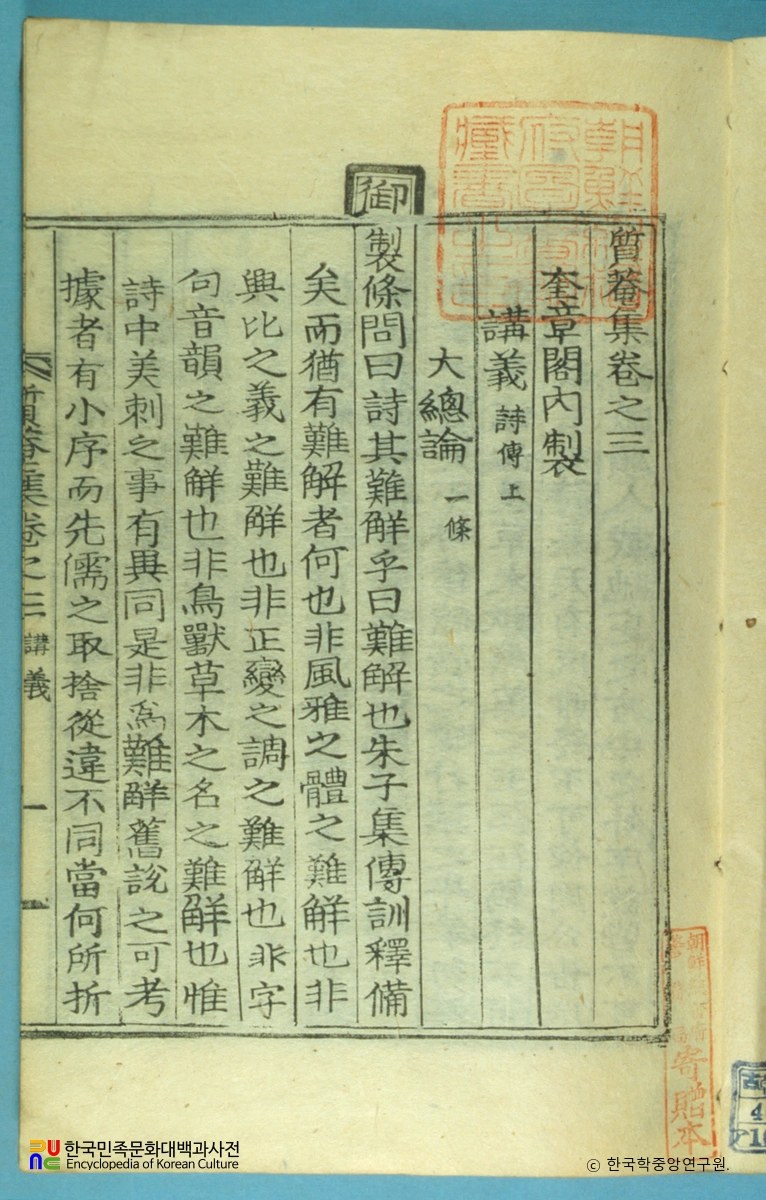 質菴集卷之三
奎章閣內製
講義 詩傳上
大總論 一條
御
製條問曰詩其難解乎曰難解也朱子集傳訓釋備
矣而猶有難解者何也非風雅之體之難解也非
興比之義之難解也非正變之調之難解也非字
句音韻之難解也非鳥獸草木之名之難解也惟
詩中美刺之事有異同是非爲難解舊說之可考
據者有小序而先儒之取捨從違不同當何所折
質菴集卷之三 講義 一
寄贈本
한국민족문화대백과사전
Encyclopedia of Korean Culture
© 한국학중앙연구원.